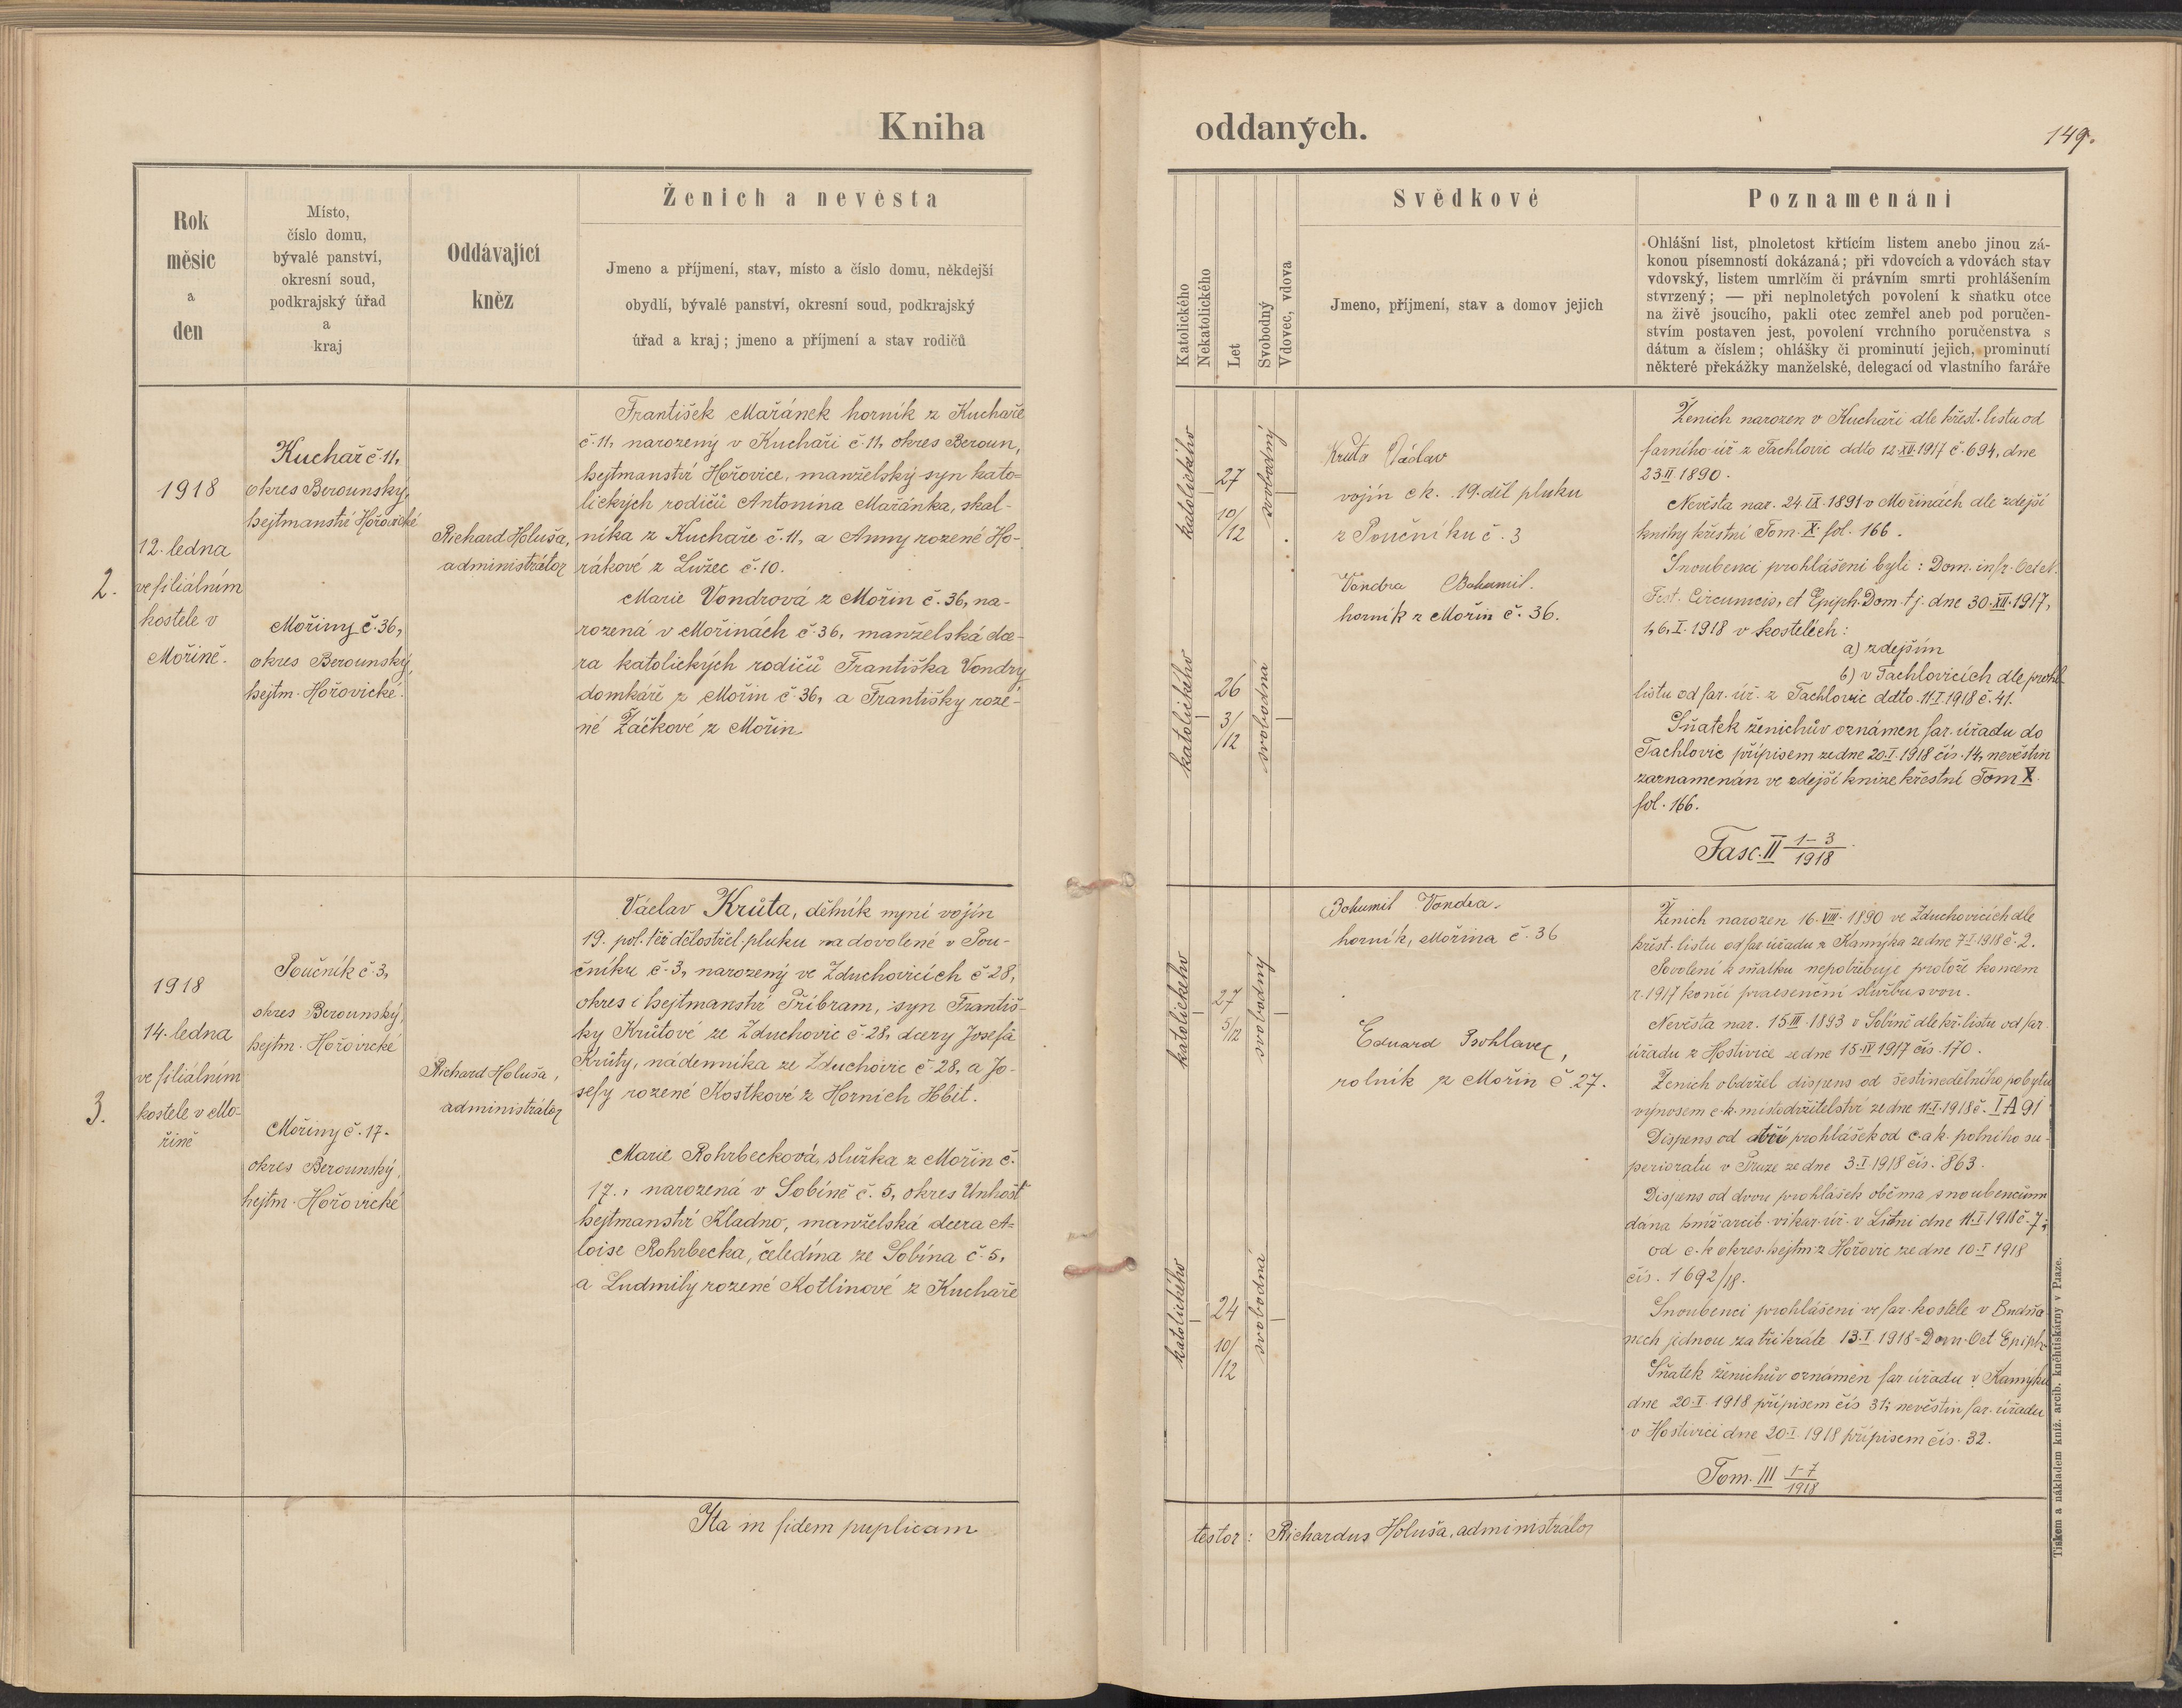 Kniha
oddaných.
149.
Rok
měsíc
a
den
Místo,
číslo domu,
bývalé panství,
okresní soud,
podkrajský úřad
a
kraj
Oddávající
kněz
Ženich a nevěsta
Jmeno a příjmení, stav, místo a číslo domu, někdejší
obydlí, bývalé panství, okresní soud, podkrajský
úřad a kraj; jmeno a příjmení a stav rodičů
Katolického
Nekatolického
Let
Svobodný
Vdovec, vdova
Svědkové
Jmeno, příjmení, stav a domov jejich
Poznamenáni
Ohlášní list, plnoletost křtícím listem anebo jinou zá-
konou písemností dokázaná; při vdovcích a vdovách stav
vdovský, listem umrlčím či právním smrti prohlášením
stvrzený; — při neplnoletých povolení k sňatku otce
na živě jsoucího, pakli otec zemřel aneb pod poručen-
stvím postaven jest, povolení vrchního poručenstva s
dátum a číslem; ohlášky či prominutí jejich, prominutí
některé překážky manželské, delegací od vlastního faráře
2.
1918
12. ledna
ve filiálním
kostele v
Mořině.
Kuchař č. 11,
okres Berounský,
hejtmanství Hořovické
Mořiny č. 36,
okres Berounský,
hejtm. Hořovické.
Richard Holuša,
administrátor
František Mařánek horník z Kuchaře
č. 11, narozený v Kuchaři č. 11, okres Beroun,
hejtmanství Hořovice, manželský syn kato-
lických rodičů Antonína Mařánka, skal-
níka z Kuchaře č. 11, a Anny rozené Ho-
rákové z Lužec č. 10.
Marie Vondrová z Mořin č. 36, na-
rozená v Mořinách č. 36, manželská dce-
ra katolických rodičů Františka Vondry
domkáře z Mořin č. 36, a Františky roze-
né Žáčkové z Mořin.
katolického
27
10/12
svobodný
katolického
26
3/12
svobodná
Kruta Václav
vojín c k. 19. děl pluku
z Poučníku č. 3
Vondra Bohumil.
horník z Mořin č. 36.
Ženich narozen v Kuchaři dle křest. listu od
farního úř. z Tachlovic ddto 12.XII.1917 č. 694, dne
23.II 1890.
Nevěsta nar. 24.IX.1891 v Mořinách dle zdejší
knihy křestní Tom. X. fol. 166.
Snoubenci prohlášeni byli: Dom. infr. Oct N.
Fest. Circumcis, et Epiph. Dom. tj. dne 30.XII.1917,
1, 6, I. 1918 v kostelích:
a) zdejším
b) v Tachlovicích dle prohl.
listu od far. úř. z Tachlovic ddto. 11.I.1918 č. 41.
Sňatek ženichův oznámen far. úřadu do
Tachlovic přípisem ze dne 20.I.1918 čís. 14, nevěstin
zaznamenán ve zdejší knize křestní Tom X.
fol. 166.
Fasc. II 1-3/1918
3.
1918
14. ledna
ve filiálním
kostele v Mo-
řině
Poučník č. 3,
okres Berounský,
hejtm. Hořovické
Mořiny č. 17.
okres Berounský,
hejtm. Hořovické
Richard Holuša,
administrátor
Václav Krůta, dělník nyní vojín
19. pol. těž dělostřel. pluku na dovolené v Pou-
čníku č. 3, narozený ve Zduchovicích č 28,
okres i hejtmanství Příbram, syn Františ-
ky Krůtové ze Zduchovic č. 28, dcery Josefa
Krůty, nádenníka ze Zduchovic č. 28, a Jo-
sefy rozené Kostkové z Horních Hbit.
Marie Rohrbecková, služka z Mořin č.
17., narozená v Sobíně č. 5, okres Unhošť
hejtmanství Kladno, manželská dcera A-
loise Rohrbecka, čeledína ze Sobína č. 5,
a Ludmily rozené Kotlínové z Kuchaře
katolického
27
5/12
svobodný
katolického
24
10/12
svobodná
Bohumil Vondra.
horník, Mořina č. 36
Eduard Psohlavec,
rolník z Mořin č. 27.
Ženich narozen 16.VIII.1890 ve Zduchovicích dle
křest. listu od far úřadu z Kamýka ze dne 7.I.1918 č. 2.
Povolení k sňatku nepotřebuje protože koncem
r. 1917 končí praesenční službu svou.
Nevěsta nar. 15.III.1893 v Sobíně dle kř. listu od far.
úřadu z Hostivice ze dne 15.IV 1917 čís. 170.
Ženich obdržel dispens od šestinedělního pobytu
výnosem c. k. místodržitelství ze dne 11.I.1918 č. I A 91
Dispens od tří prohlášek od c. a k. polního su-
perioratu v Praze ze dne 3.I 1918 čís. 863.
Dispens od dvou prohlášek oběma snoubencům
dána kníž. arcib. vikar. úř. v Litni dne 11.I.1918 č. 7;
od c. k okres. hejtm. z Hořovic ze dne 10.I 1918
čís. 1692/18.
Snoubenci prohlášeni ve far. kostele v Budňa-
nech jednou za třikráte 13.I 1918 = Dom. Oct Epiph.
Sňatek ženichův oznámen far. úřadu v Kamýku
dne 20.I. 1918 přípisem čís 31; nevěstin far. úřadu
v Hostivici dne 20.I.1918 přípisem čís. 32.
Tom. III 1-7/1918
Ita in fidem puplicam
testor: Richardus Holuša, administrátor
Tiskem a nákladem kníž. arcib. kněhtiskárny v Praze.